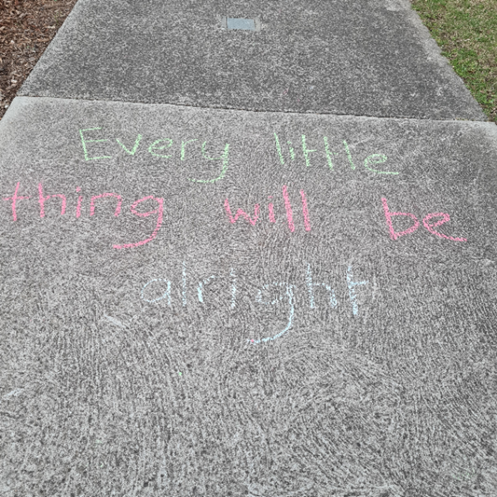 Every little
thing will be
alright